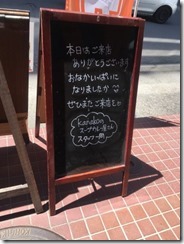 本日はご来店
ありがとうございます
おなかいっぱいに
なりましたか♡
ぜひまたご来店を
kanakoの
スープカレー屋さん
スタッフ一同